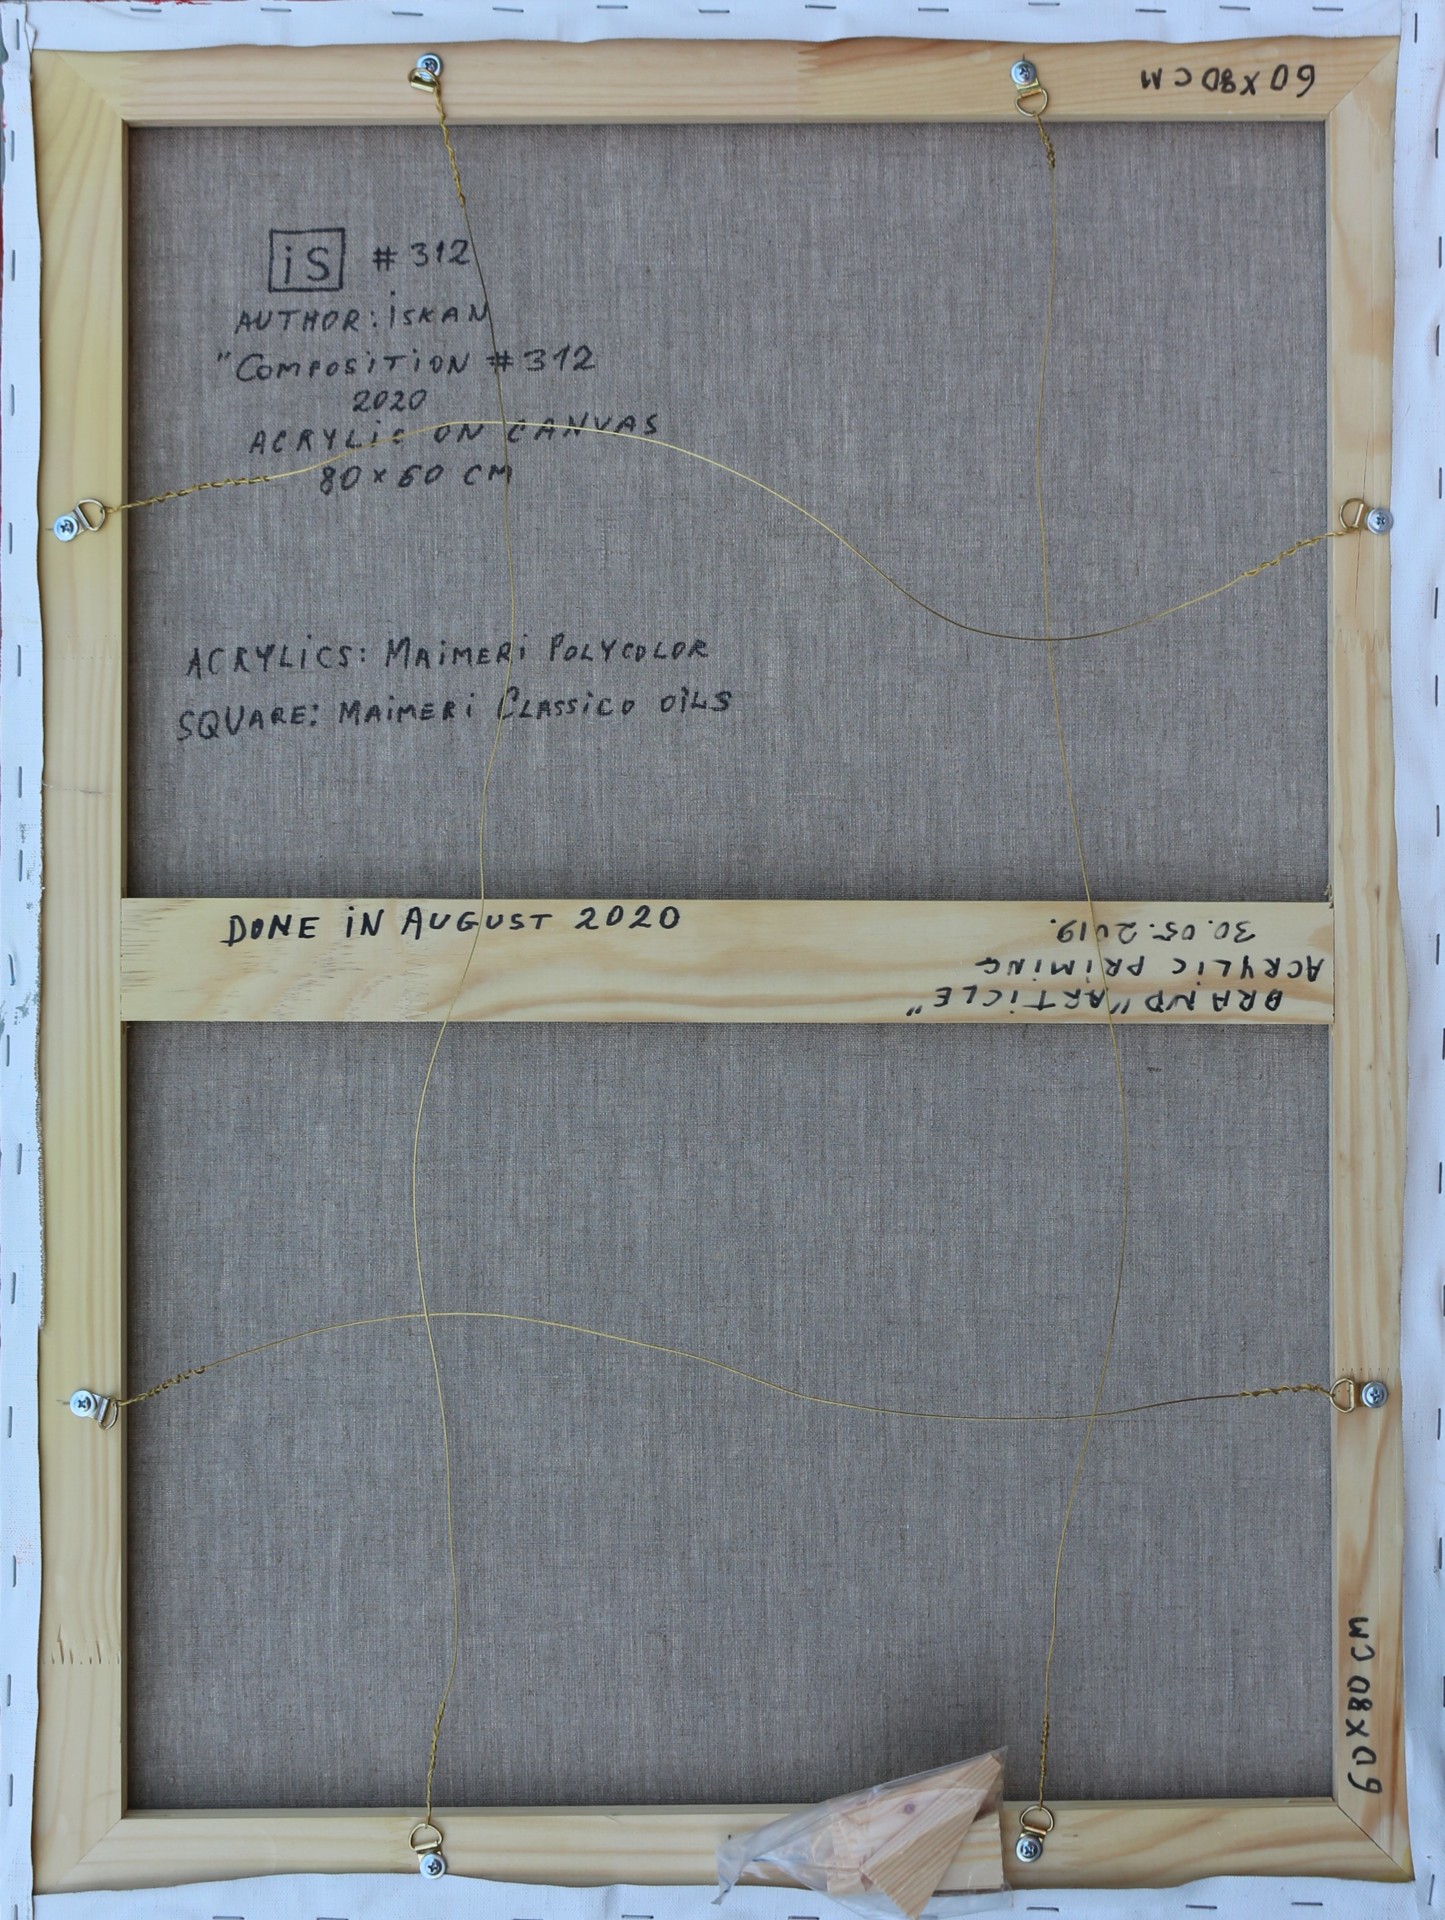 60 X 80 CM
iS # 312
AUTHOR: iSKAN
"COMPOSITION # 312
2020
ACRYLIC ON CANVAS
80 x 60 CM
ACRYLiCS: MAiMERi POLYCOLOR
SQUARE: MAiMERi CLASSiCO OiLS
DONE iN AUGUST 2020
BRAND "ARTiCLE"
ACRYLIC PRiMiNG
30.05.2019.
60 X 80 CM